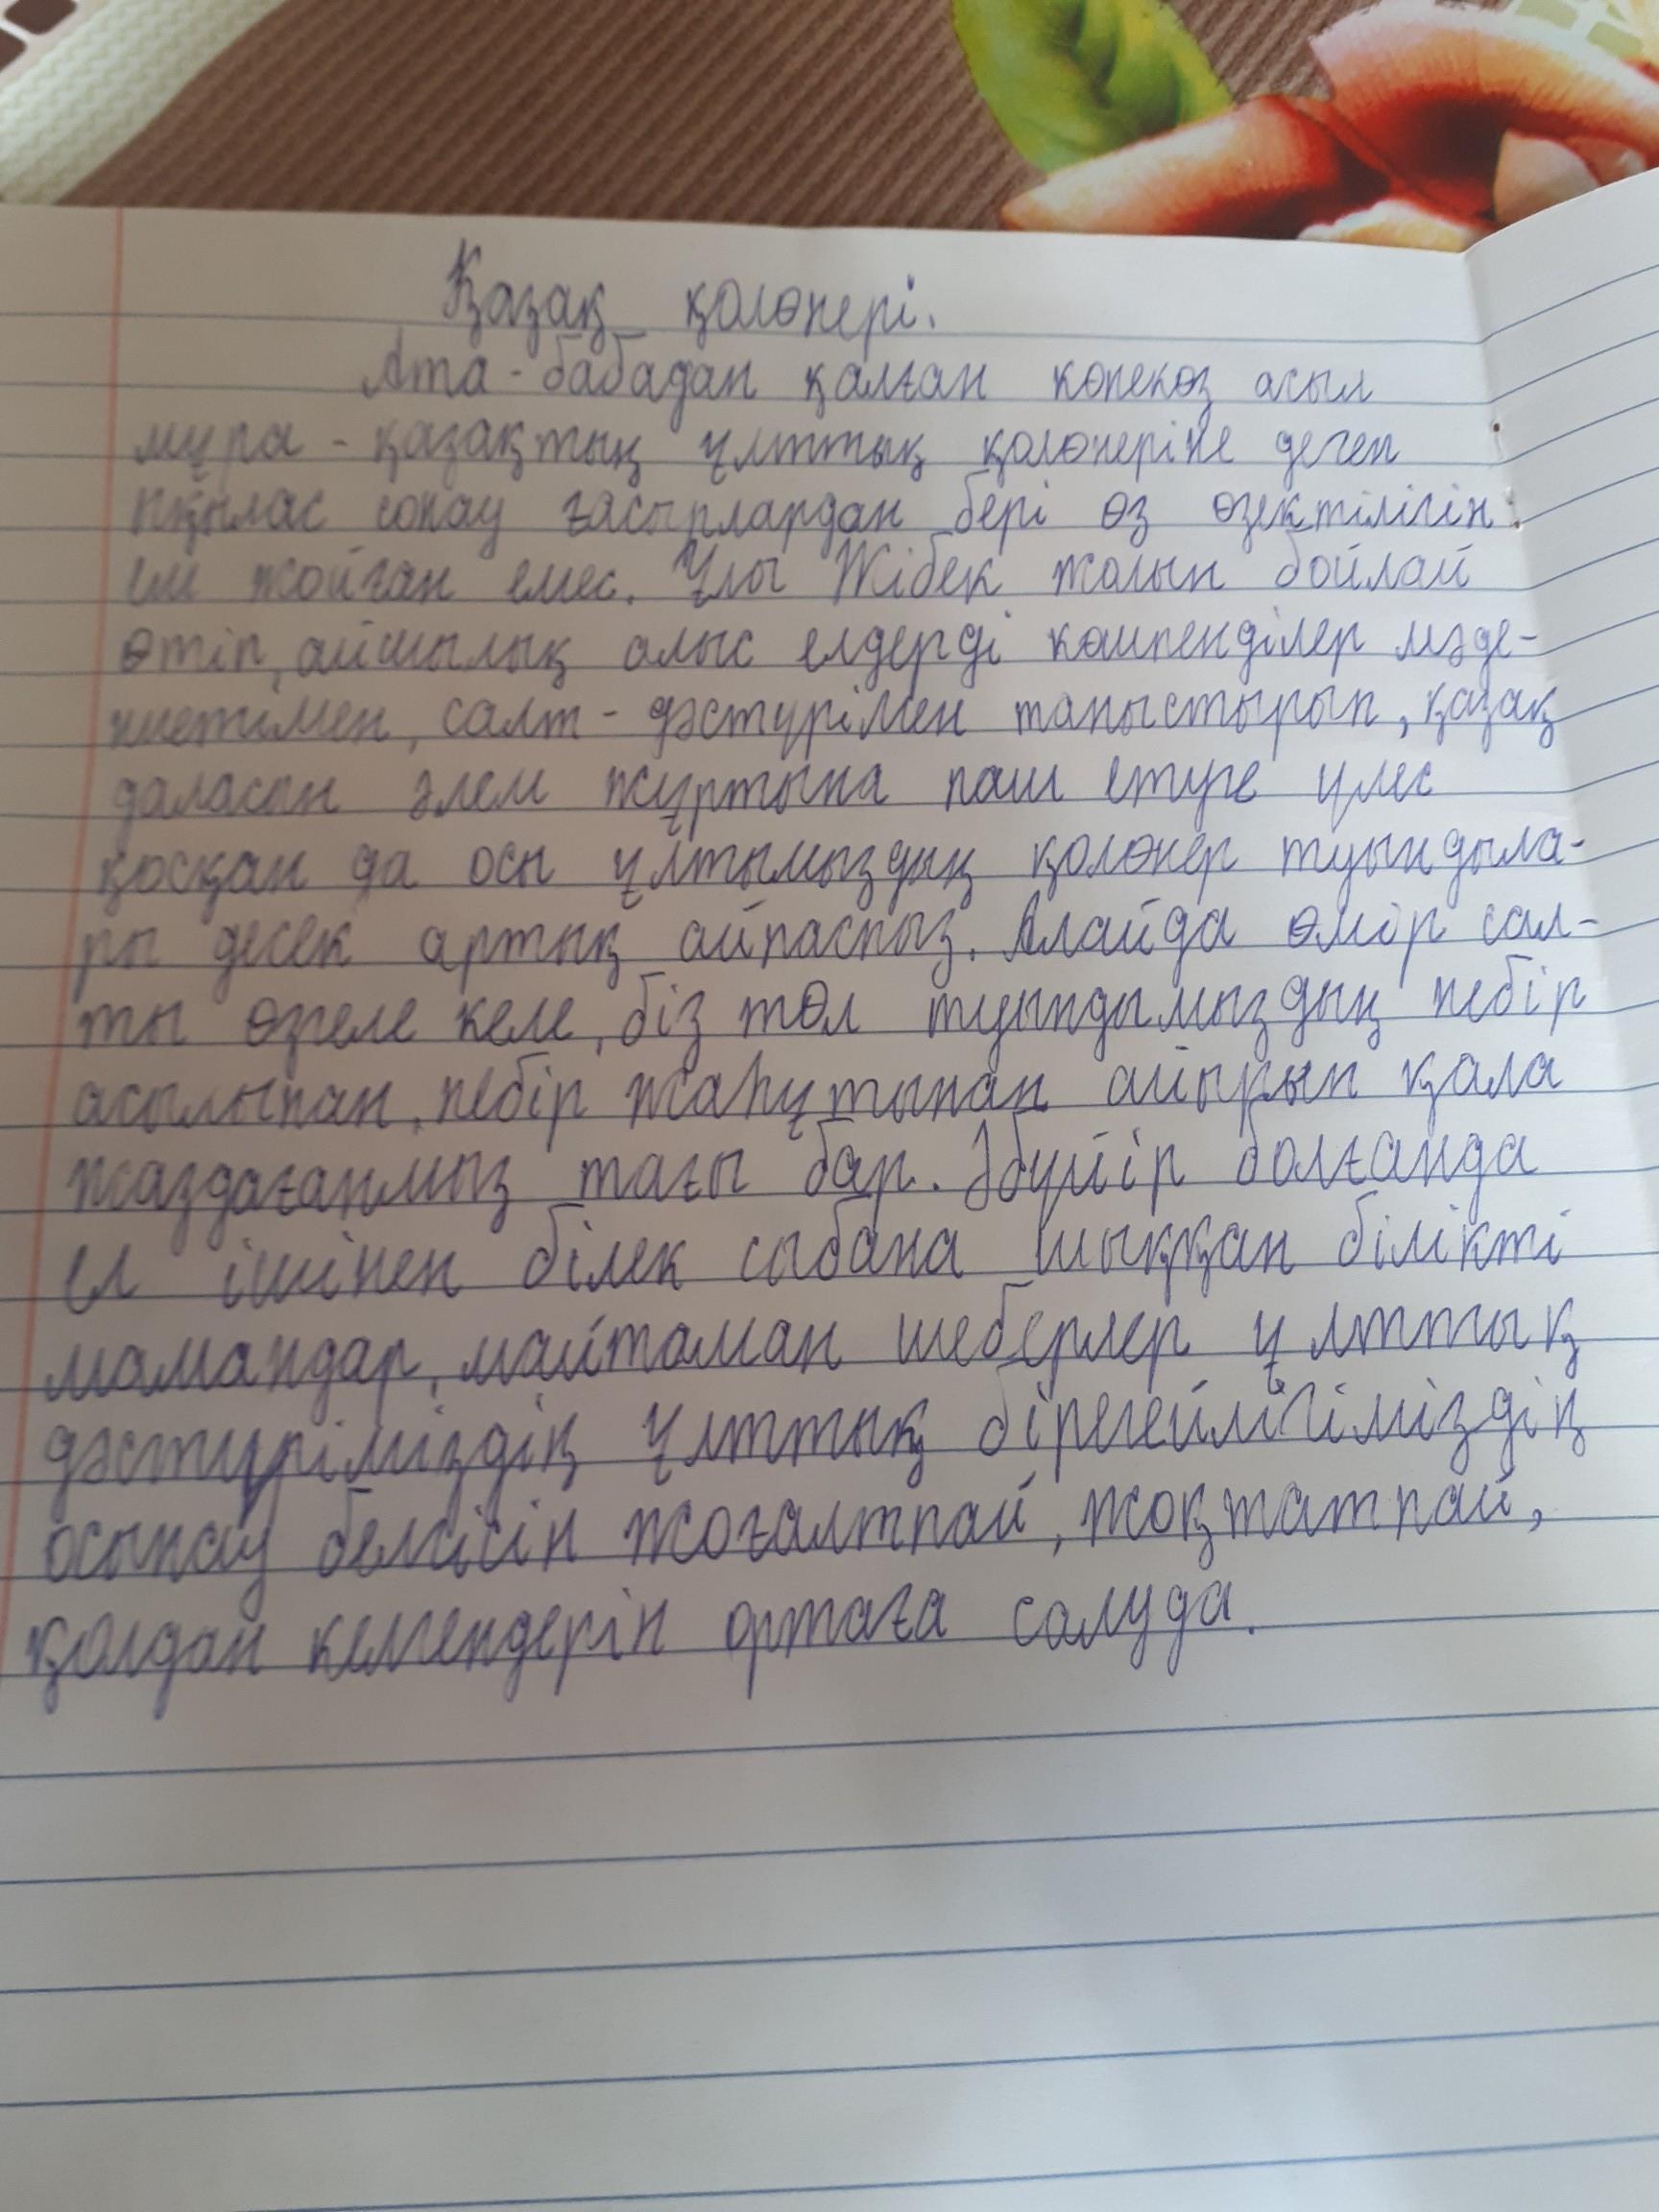 Қазақ қолөнері.
Ата-бабадан қалған көнекөз асыл
мұра - қазақтың ұлттық қолөнеріне деген
ықылас сонау ғасырлардан бері өз өзектілігін
еш жойған емес. Ұлы Жібек жолын бойлай
өтіп, айшылық алыс елдерді көшпенділер мәде-
ниетімен, салт-дәстүрімен таныстырып, қазақ
даласын әлем жұртына паш етуге үлес
қосқан да осы ұлтымыздың қолөнер туындыла-
ры десек артық айтпаспыз. Алайда өмір сал-
ты өзгеле келе, біз төл туындымыздың небір
асылынан, небір жаһұтынан айырып қала
жаздағанмыз тағы бар. Әбүйір болғанда
ел ішінен білек сыбана шыққан білікті
мамандар, майталман шеберлер ұлттық
дәстүріміздің ұлттық бірегейлігіміздің
осынау белгісін жоғалтпай, жоқтатпай,
қолдан келгендерін ортаға салуда.